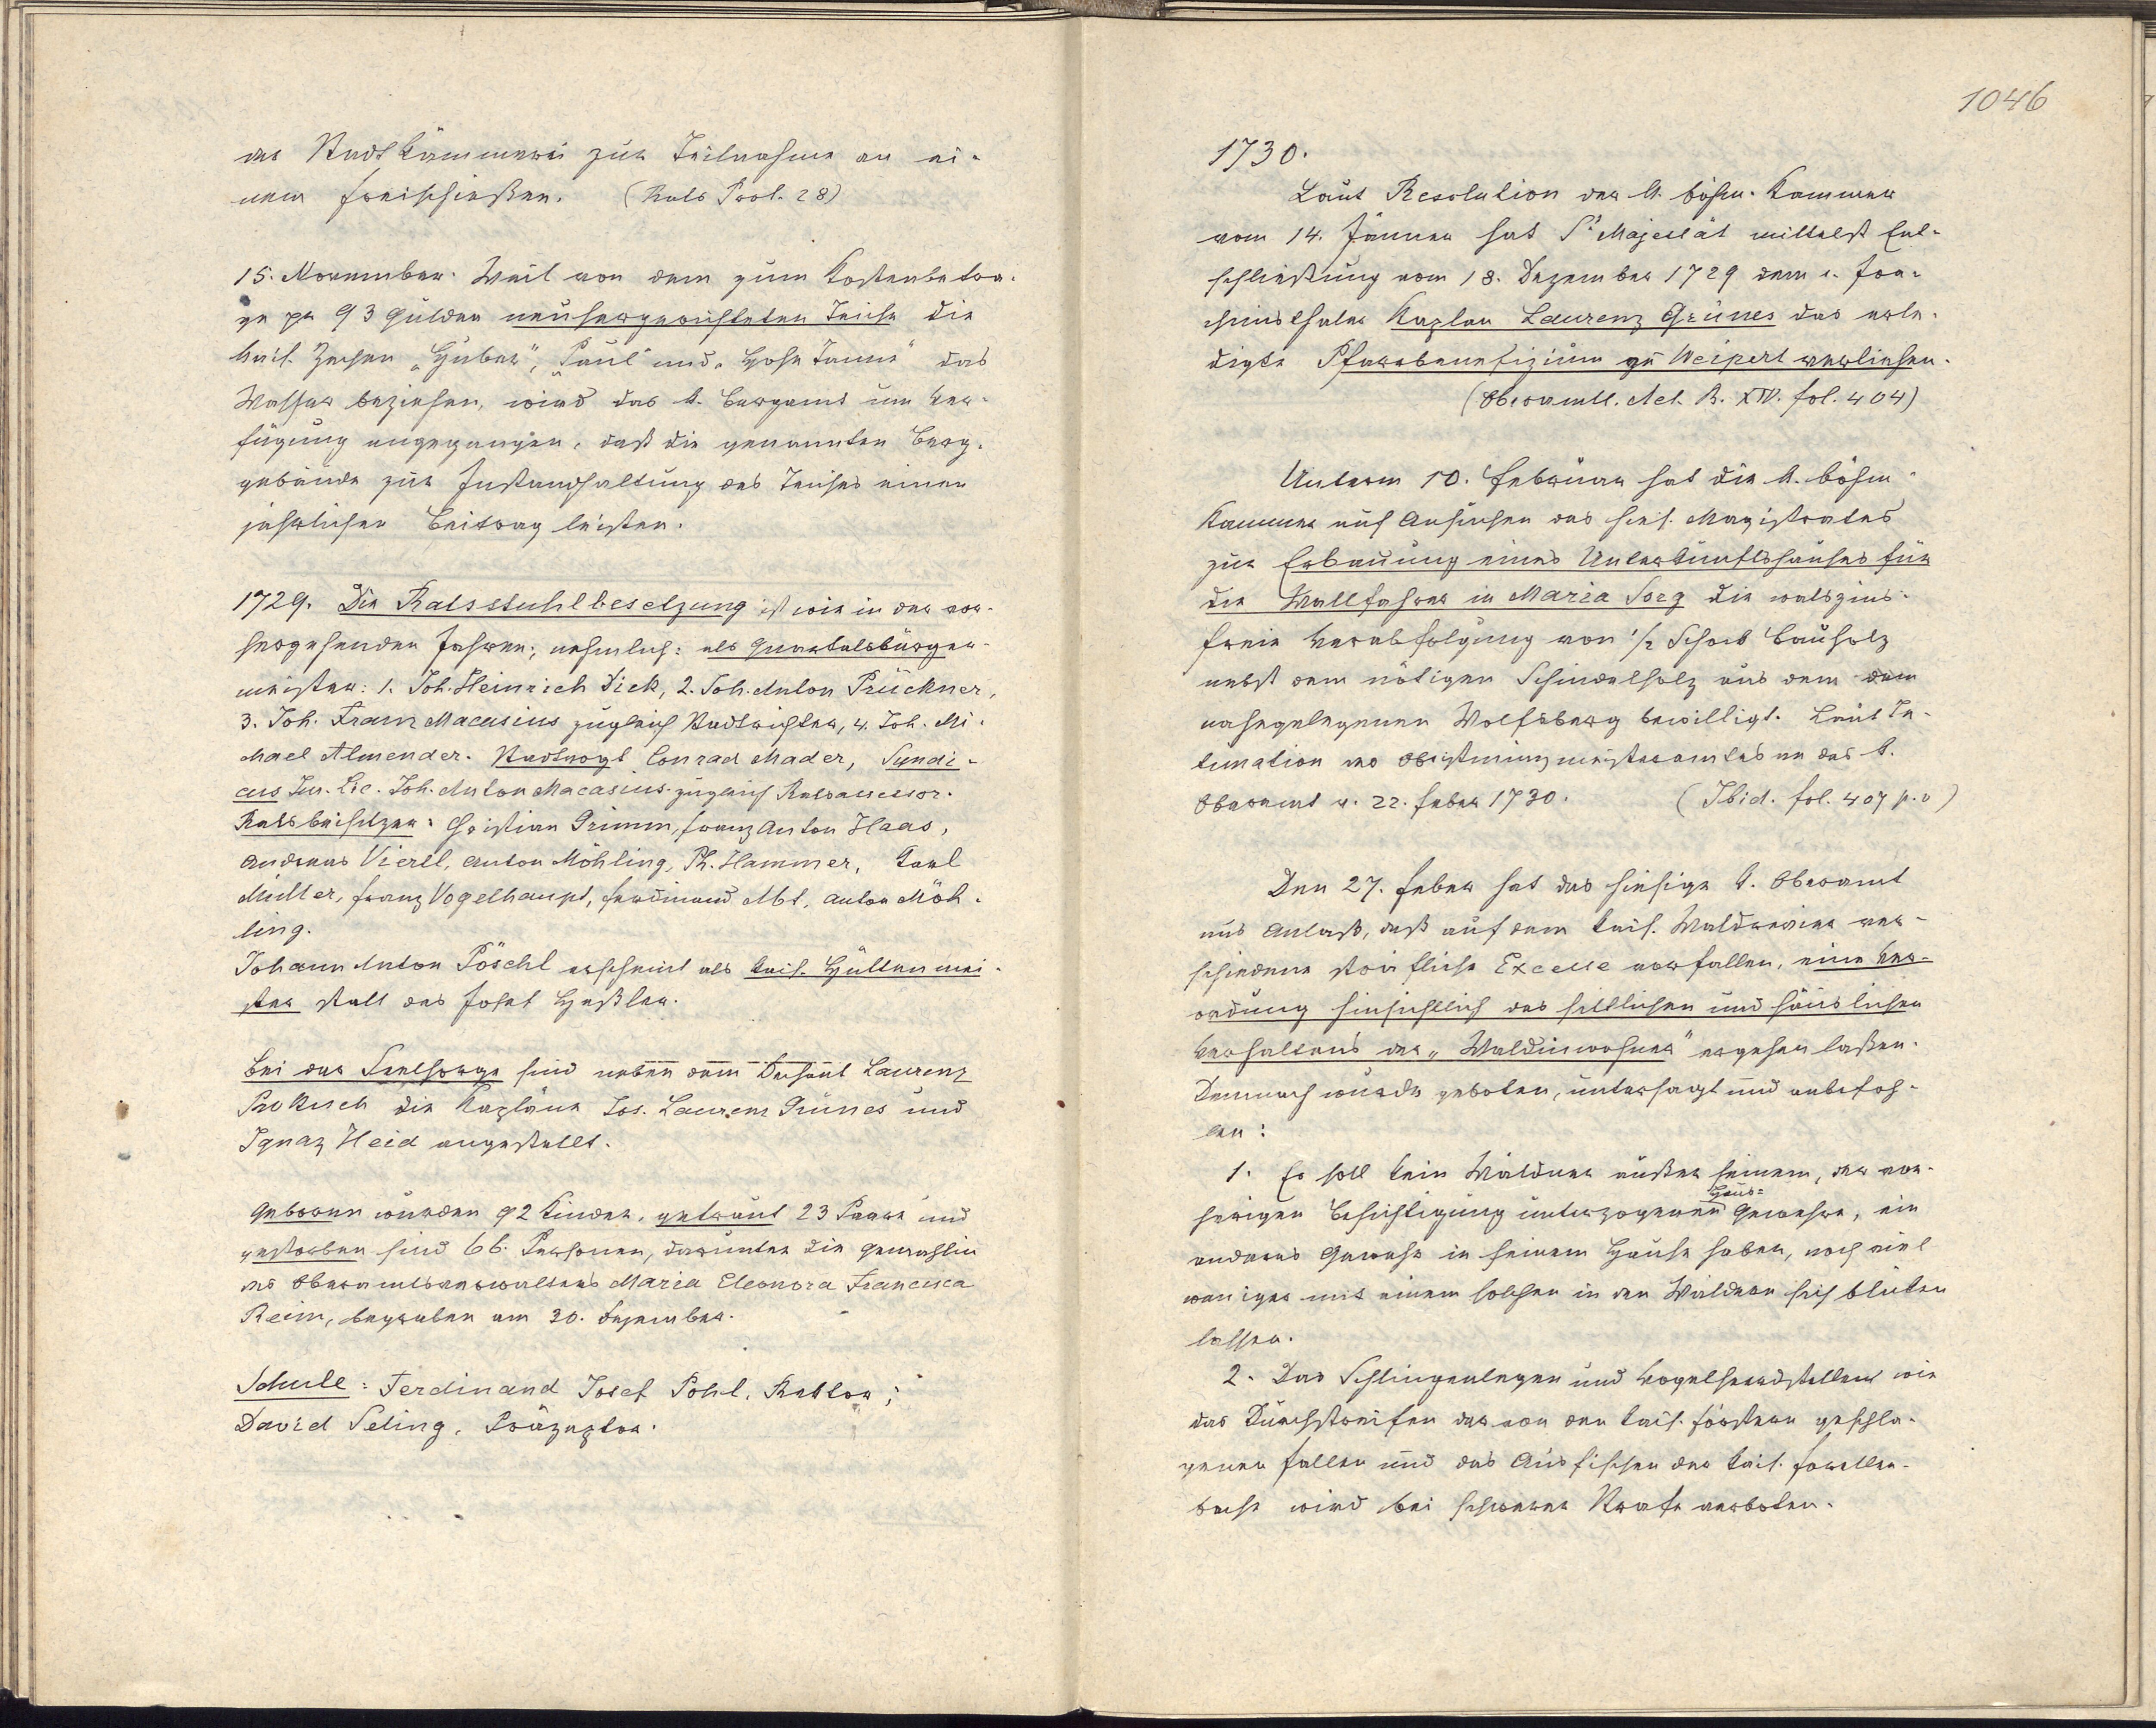 der Stadtkämmerei zur Teilnahme an ei-
nem Freischießen. (Rats Prot. 28)
15. November. Weil von dem zum Kostenbetra-
ge pr 93 Gulden neuhergerichteten Teiche die
kais. Zechen „Huber", „Paul" und „Hohe Tanne" das
Wasser beziehen, wird das k. Bergamt um Ver-
fügung angegangen, daß die genannten Berg-
gebäude zur Instandhaltung des Teiches einen
jährlichen Beitrag leisten.
1729. Die Ratsstuhlbesetzung ist wie in den vor-
hergehenden Jahren, nehmlich: als Quartalsbürger-
meister: 1. Joh. Heinrich Dick, 2. Joh. Anton Prückner,
3. Joh. Franz Macasius zugleich Stadtrichter, 4. Joh. Mi-
chael Almender. Stadtvogt Conrad Mader, Syndi-
cus Jur. Lic. Joh. Anton Macasius zugleich Ratsassessor.
Ratsbeisitzer: Christian Grimm, Franz Anton Haas,
Andreas Viertl, Anton Möhling, Ph. Hammer, Karl
Müller, Franz Vogelhaupt, Ferdinand Abt, Anton Möh-
ling.
Johann Anton Pöschl erscheint als kais. Hüttenmei-
ster statt des Josef Heßler.
Bei der Seelsorge sind neben dem Dechant Laurenz
Prokisch die Kapläne Jos. Laurenz Grünes und
Ignaz Heid angestellt.
Geboren wurden 92 Kinder, getraut 23 Paare und
gestorben sind 66 Personen, darunter die Gemahlin
des Oberamtsverwalters Maria Eleonora Francisca
Reim, begraben am 30. Dezember.
Schule: Ferdinand Josef Pohl, Rektor;
David Seling, Präzeptor.
1046
1730.
Laut Resolution der k. böhm. Kammer
vom 14. Jänner hat Sr Majestät mittelst Ent-
schließung vom 18. Dezember 1729 dem s. Joa-
chimsthaler Kaplan Laurenz Grünes das erle-
digte Pfarrbenefizium zu Weipert verliehen.
(Oberamtl. Act. B. XIV. fol. 404)
Unterm 10. Februar hat die k. böhm.
Kammer auf Ansuchen des hies. Magistrates
zur Erbauung eines Unterkunftshauses für
die Wallfahrer in Maria Sorg die waldzins-
freie Verabfolgung von 1/2 Schock Bauholz
nebst dem nötigen Schindelholz aus dem dem
nahegelegenen Wolfsberg bewilligt. Laut In-
timation des Obristmünzmeisteramtes an das k.
Oberamt v. 22. Feber 1730. (Ibid. fol. 407 p.v)
Den 27. Feber hat das hiesige k. Oberamt
aus Anlaß, daß auf dem kais. Waldrevier ver-
schiedene sträfliche Excesse vorfallen, eine Ver-
ordnung hinsichtlich des sittlichen und häuslichen
Verhaltens der „Waldinwohner" ergehen laßen.
Demnach wurde geboten, untersagt und anbefoh-
len:
1. Es soll kein Wäldner außer seinem, der vor-
herigen Besichtigung unterzogenen Haus= Gewehre, ein
anderes Gewehr in seinem Hause haben, noch viel
weniger mit einem solchen in den Wäldern sich blicken
lassen.
2. Das Schlingenlegen und Vogelherdstellen wie
das Durchstreifen der von den kais. Förstern geschla-
genen Fallen und das Ausfischen der kais. Forellen-
bache wird bei schwerer Strafe verboten.